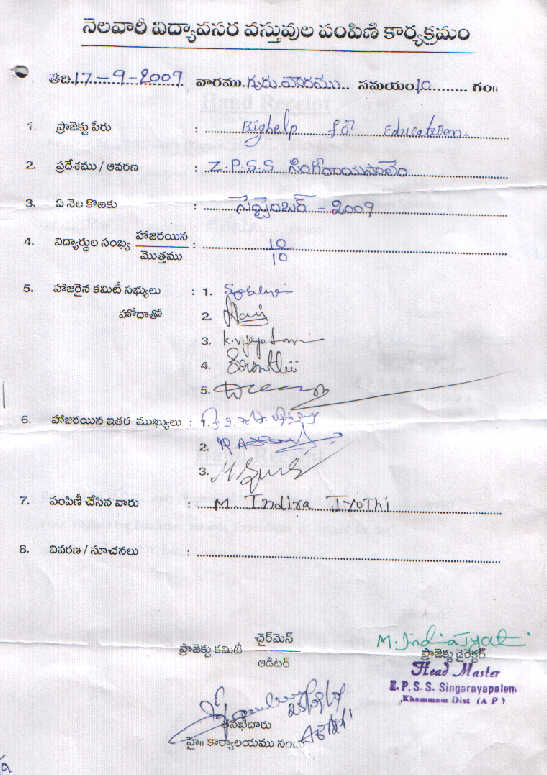 నెలవారీ విద్యావసర వస్తువుల పంపిణీ కార్యక్రమం
తేది.17-9-2009 వారము.గురువారము.. సమయం10....... గం॥
1. ప్రాజెక్టు పేరు : Bighelp for Education.
2. ప్రదేశము / ఆవరణ : Z.P.S.S సింగరాయపాలెం
3. ఏ నెల కొఱకు : సెప్టెంబర్ - 2009
4. విద్యార్థుల సంఖ్య హాజరయిన : 10
మొత్తము 10
5. హాజరైన కమిటీ సభ్యులు : 1.
హోదాతో 2.
3.
4.
5.
6. హాజరయిన ఇతర ముఖ్యులు : 1.
2.
3.
7. పంపిణీ చేసిన వారు : M. Indira Jyothi
8. వివరణ / సూచనలు :
ప్రాజెక్టు కమిటీ ఛైర్మెన్
ఆడిటర్
M. Indira Jyoti
ప్రాజెక్టు డైరెక్టర్
Head Master
Z.P.S.S. Singarayapalem
Khammam Dist (A P)
తనిఖీదారు
ప్రైం॥ కార్యాలయము నం.